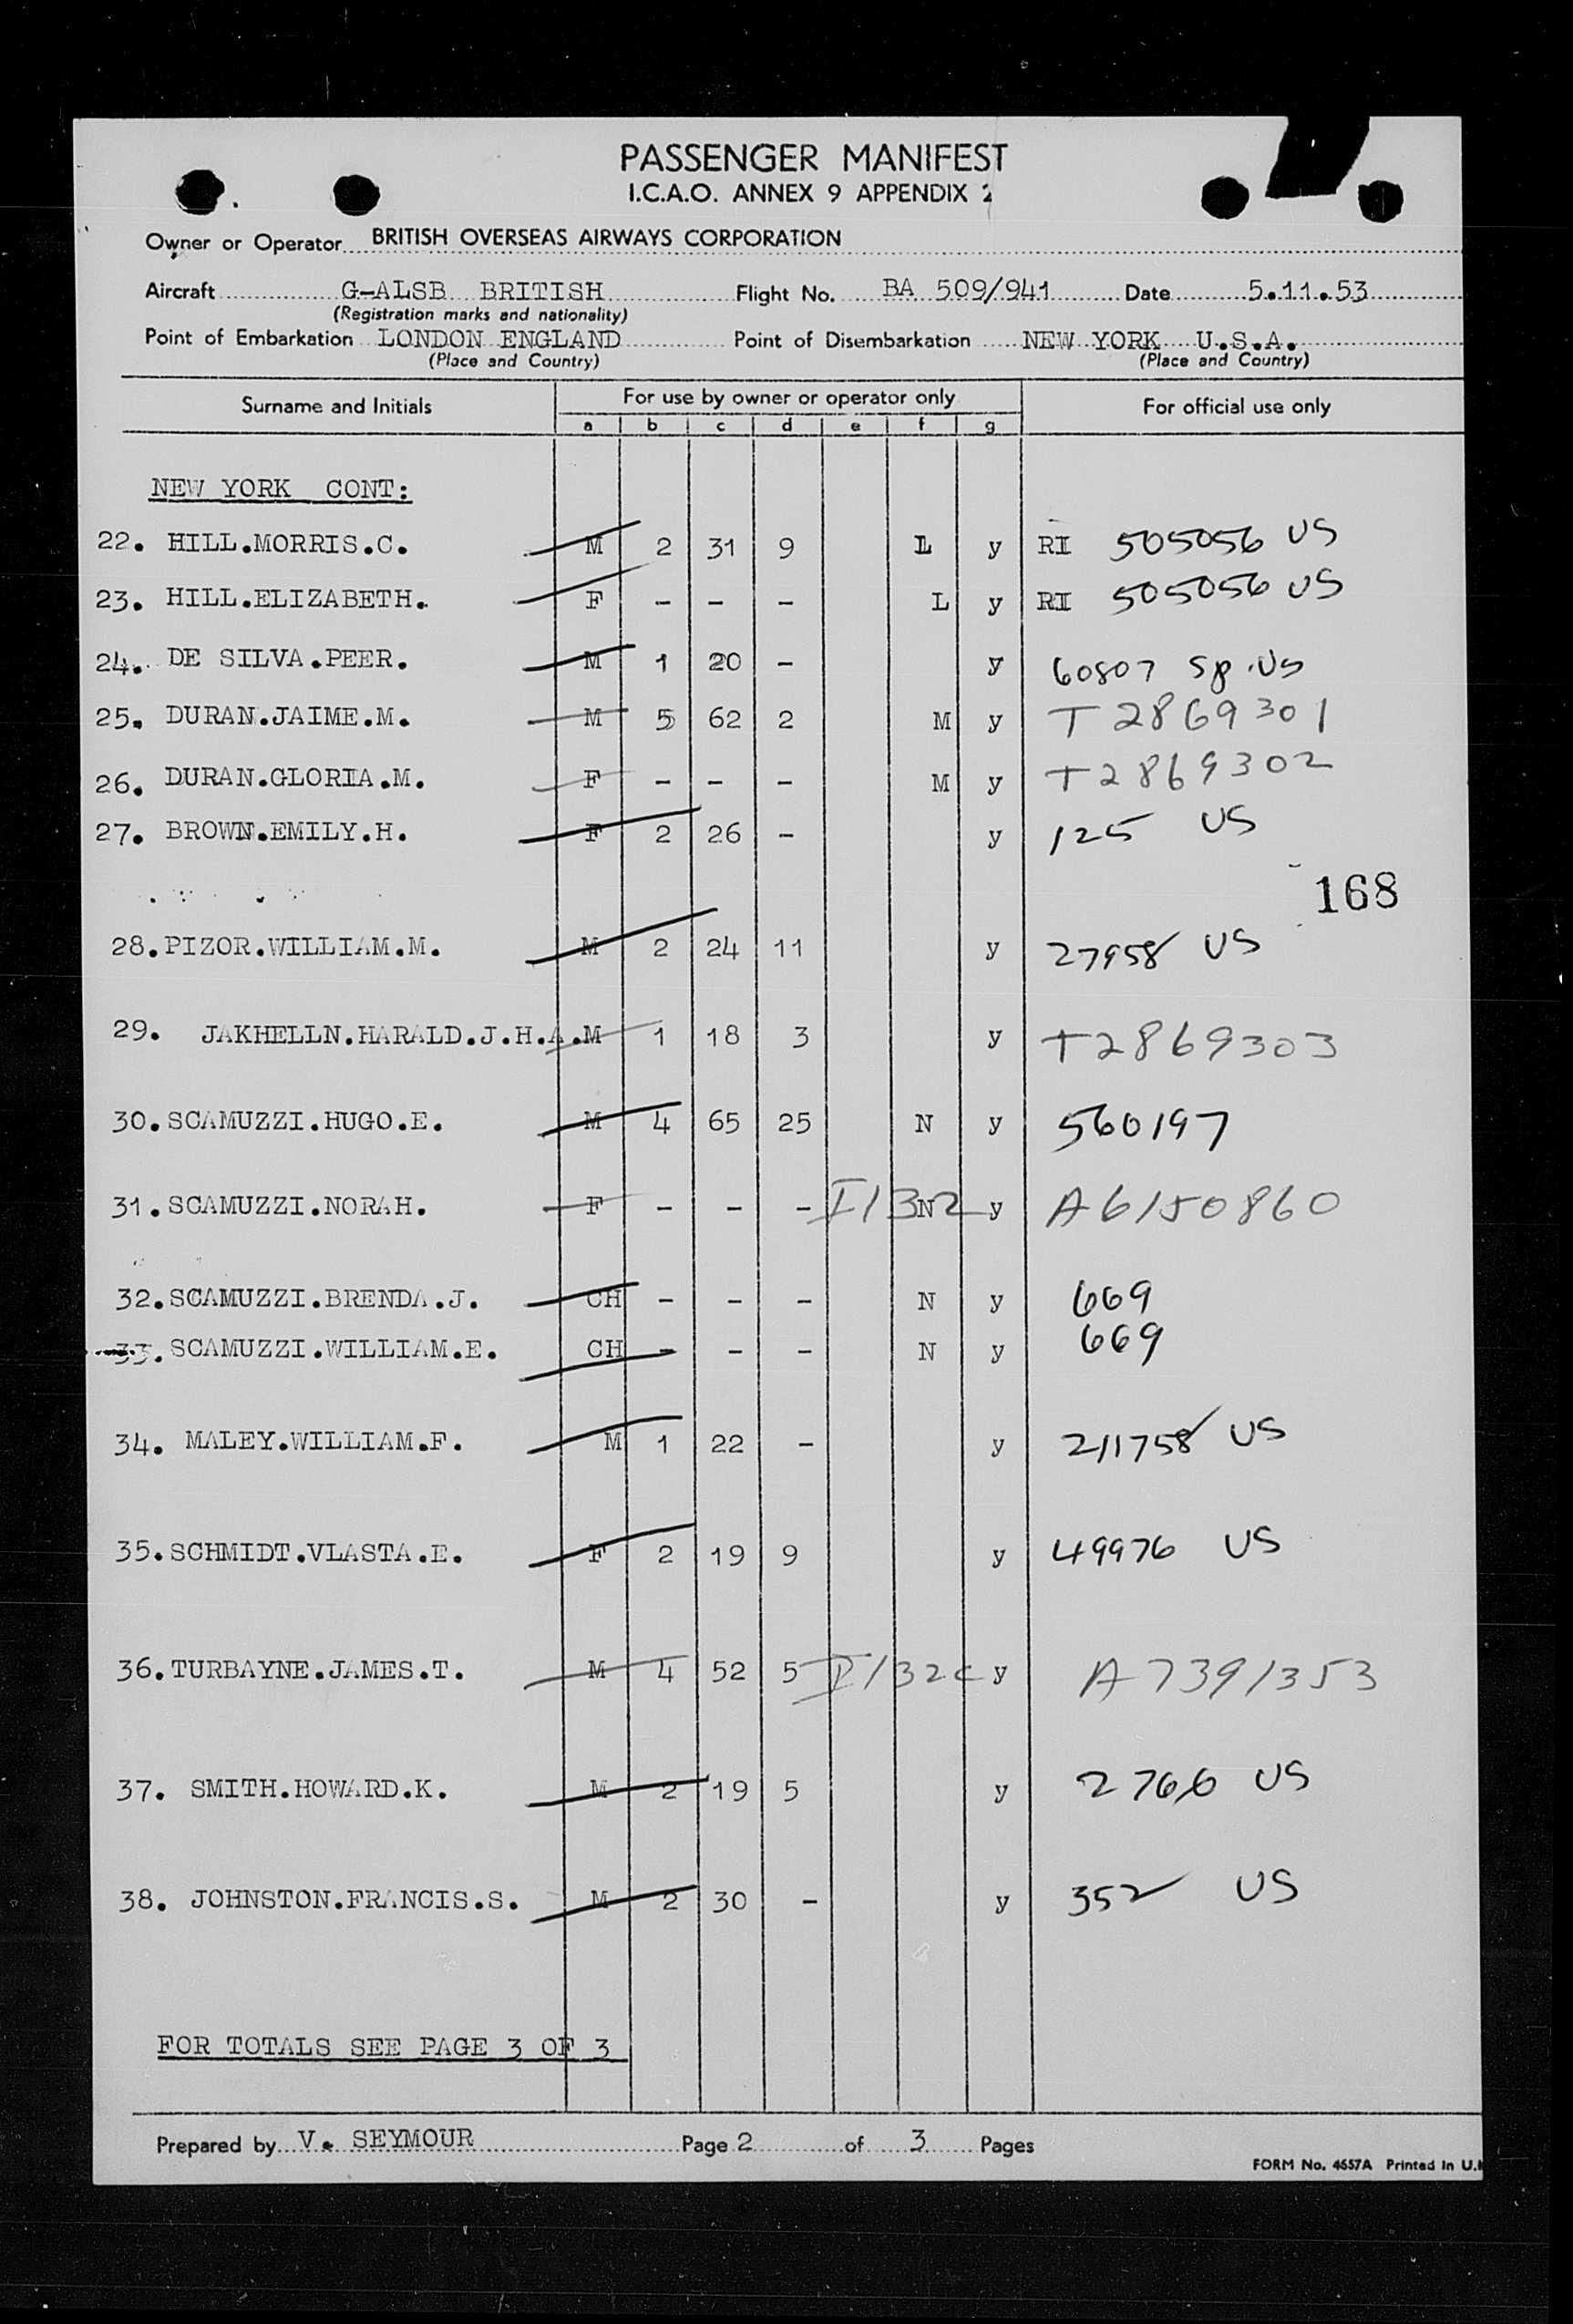 PASSENGER MANIFEST
I.C.A.O. ANNEX 9 APPENDIX 2
Owner or Operator BRITISH OVERSEAS AIRWAYS CORPORATION
Aircraft G-ALSB BRITISH Flight No. BA 509/941 Date 5.11.53
(Registration marks and nationality)
Point of Embarkation LONDON ENGLAND Point of Disembarkation NEW YORK U.S.A.
(Place and Country) (Place and Country)
Surname and Initials For use by owner or operator only For official use only
a b c d e f g
NEW YORK CONT:
22. HILL.MORRIS.C. M 2 31 9 L y RI 505056 US
23. HILL.ELIZABETH. F - - - L y RI 505056 US
24. DE SILVA.PEER. M 1 20 - y 60807 Sp. US
25. DURAN.JAIME.M. M 5 62 2 M y T2869301
26. DURAN.GLORIA.M. F - - - M y T2869302
27. BROWN.EMILY.H. F 2 26 - y 125 US
168
28. PIZOR.WILLIAM.M. M 2 24 11 y 27958 US
29. JAKHELLN.HARALD.J.H.A. M 1 18 3 y T2869303
30. SCAMUZZI.HUGO.E. M 4 65 25 N y 560197
31. SCAMUZZI.NORAH. F - - - I/302 N y A6150860
32. SCAMUZZI.BRENDA.J. CH - - - N y 669
33. SCAMUZZI.WILLIAM.E. CH - - - N y 669
34. MALEY.WILLIAM.F. M 1 22 - y 211758 US
35. SCHMIDT.VLASTA.E. F 2 19 9 y 49976 US
36. TURBAYNE.JAMES.T. M 4 52 5 I/32c y A7391353
37. SMITH.HOWARD.K. M 2 19 5 y 2766 US
38. JOHNSTON.FRANCIS.S. M 2 30 - y 352 US
FOR TOTALS SEE PAGE 3 OF 3
Prepared by V. SEYMOUR Page 2 of 3 Pages
FORM No. 4557A Printed in U.